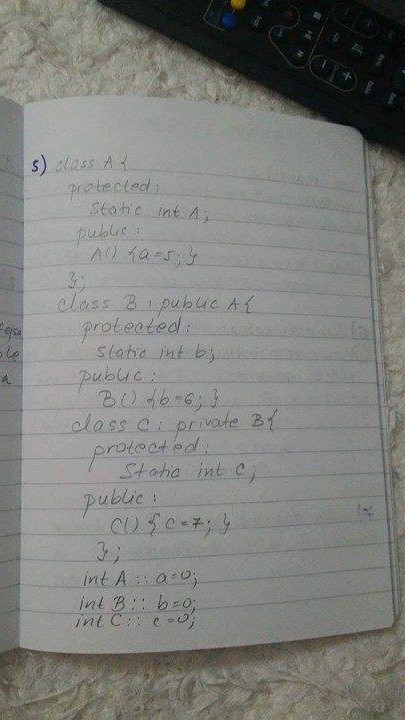 5) class A {
protected:
Static int A;
public:
A() {a=5; }
};
class B : public A{
protected:
Static int b;
public:
B() {b=6; }
class C: private B{
protected:
Static int C;
public:
C() { C=7; }
};
int A :: a=0;
int B :: b=0;
int C :: c=0;